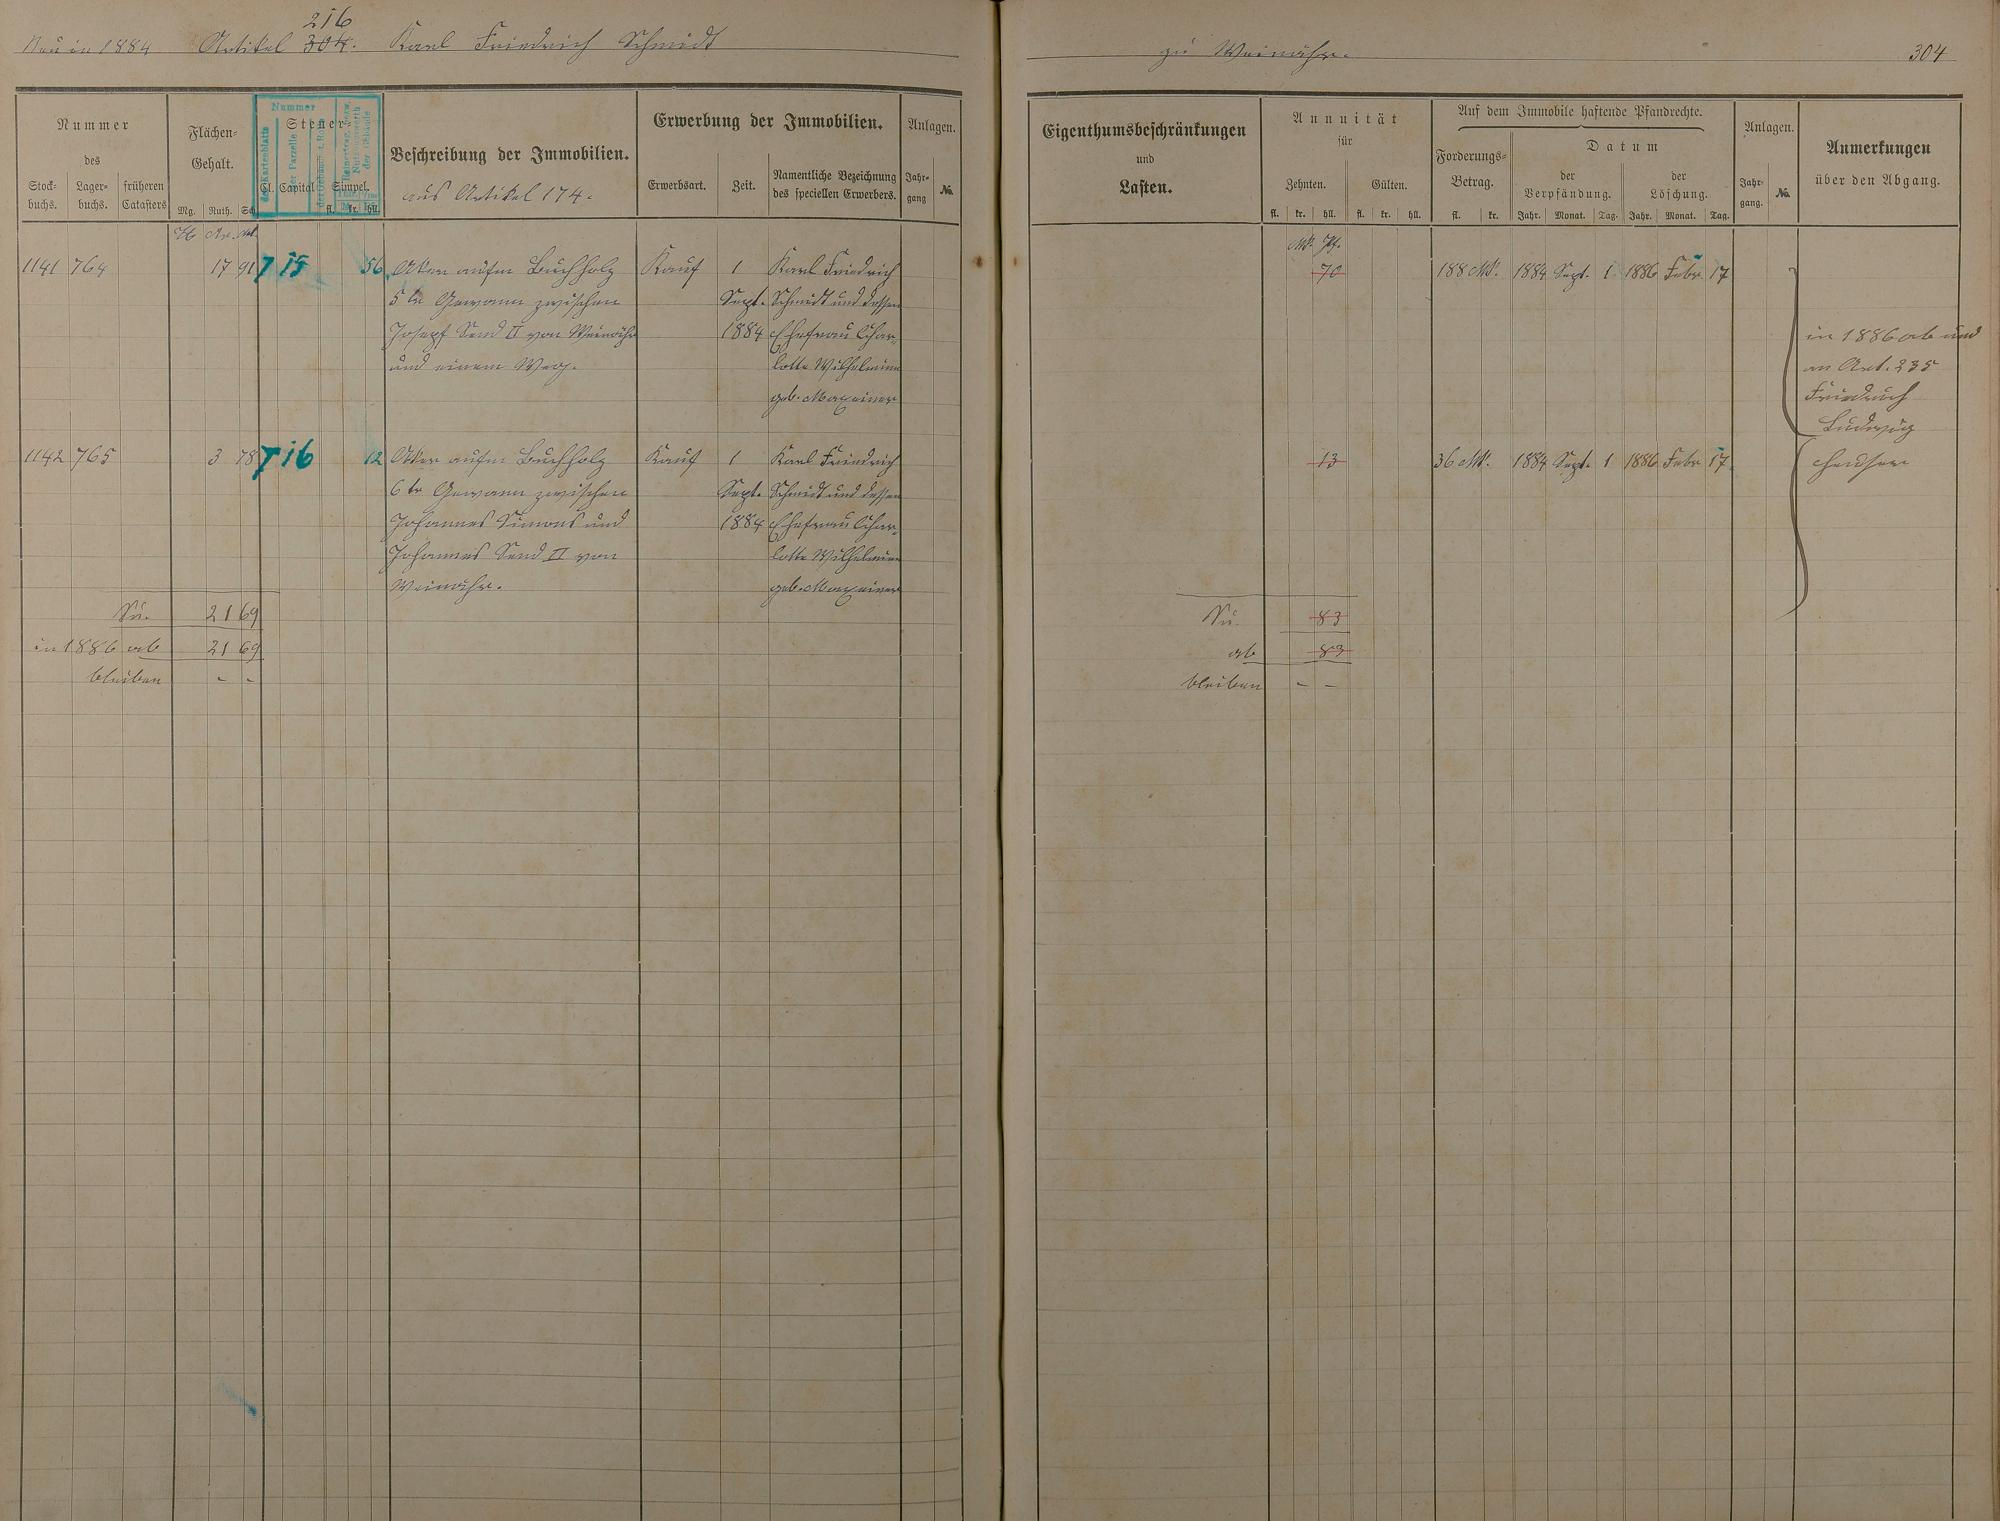 216
Neu in 1884 Artikel 304. Karl Friedrich Schmidt
zu Weinähr.
304
Nummer
des
Stock-
buchs.
Lager-
buchs.
früheren
Catasters
Flächen-
Gehalt.
Mg. Ruth. Sch.
Steuer-
Cl. Capital Simpel.
fl. kr. hll.
Nummer
des Kartenblatts
der Parzelle
Beschreibung der Immobilien.
aus Artikel 174.
Erwerbung der Immobilien.
Erwerbsart.
Zeit.
Namentliche Bezeichnung
des speciellen Erwerbers.
Anlagen.
Jahr-
gang
No.
Eigenthumsbeschränkungen
und
Lasten.
Annuität
für
Zehnten. Gülten.
fl. kr. hll. fl. kr. hll.
Auf dem Immobile haftende Pfandrechte.
Forderungs-
Betrag.
fl. kr.
Datum
der
Verpfändung.
Jahr. Monat. Tag.
der
Löschung.
Jahr. Monat. Tag.
Anlagen.
Jahr-
gang.
No.
Anmerkungen
über den Abgang.
H. Ar. Mtr.
Mk. Pf.
1141 764 17 91 7 15 56 Acker aufm Buchholz Kauf 1 Karl Friedrich 70 188 Mk. 1884 Sept. 1 1886 Febr. 17
5te Gewann zwischen Sept. Schmidt und dessen
Joseph Send II von Weinähr 1884 Ehefrau Char-
und einem Weg. lotte Wilhelmine
geb. Maxeiner
in 1886 ab und
an Art. 235
Friedrich
Ludwig
1142 765 3 78 7 16 12 Acker aufm Buchholz Kauf 1 Karl Friedrich 13 36 Mk. 1884 Sept. 1 1886 Febr 17
6te Gewann zwischen Sept. Schmidt und dessen
Johannes Simons und 1884 Ehefrau Char-
Johannes Send II von lotte Wilhelmine
Weinähr. geb. Maxeiner
Su. 21 69
in 1886 ab 21 69
bleiben - -
Su. 83
ab 83
bleiben - -